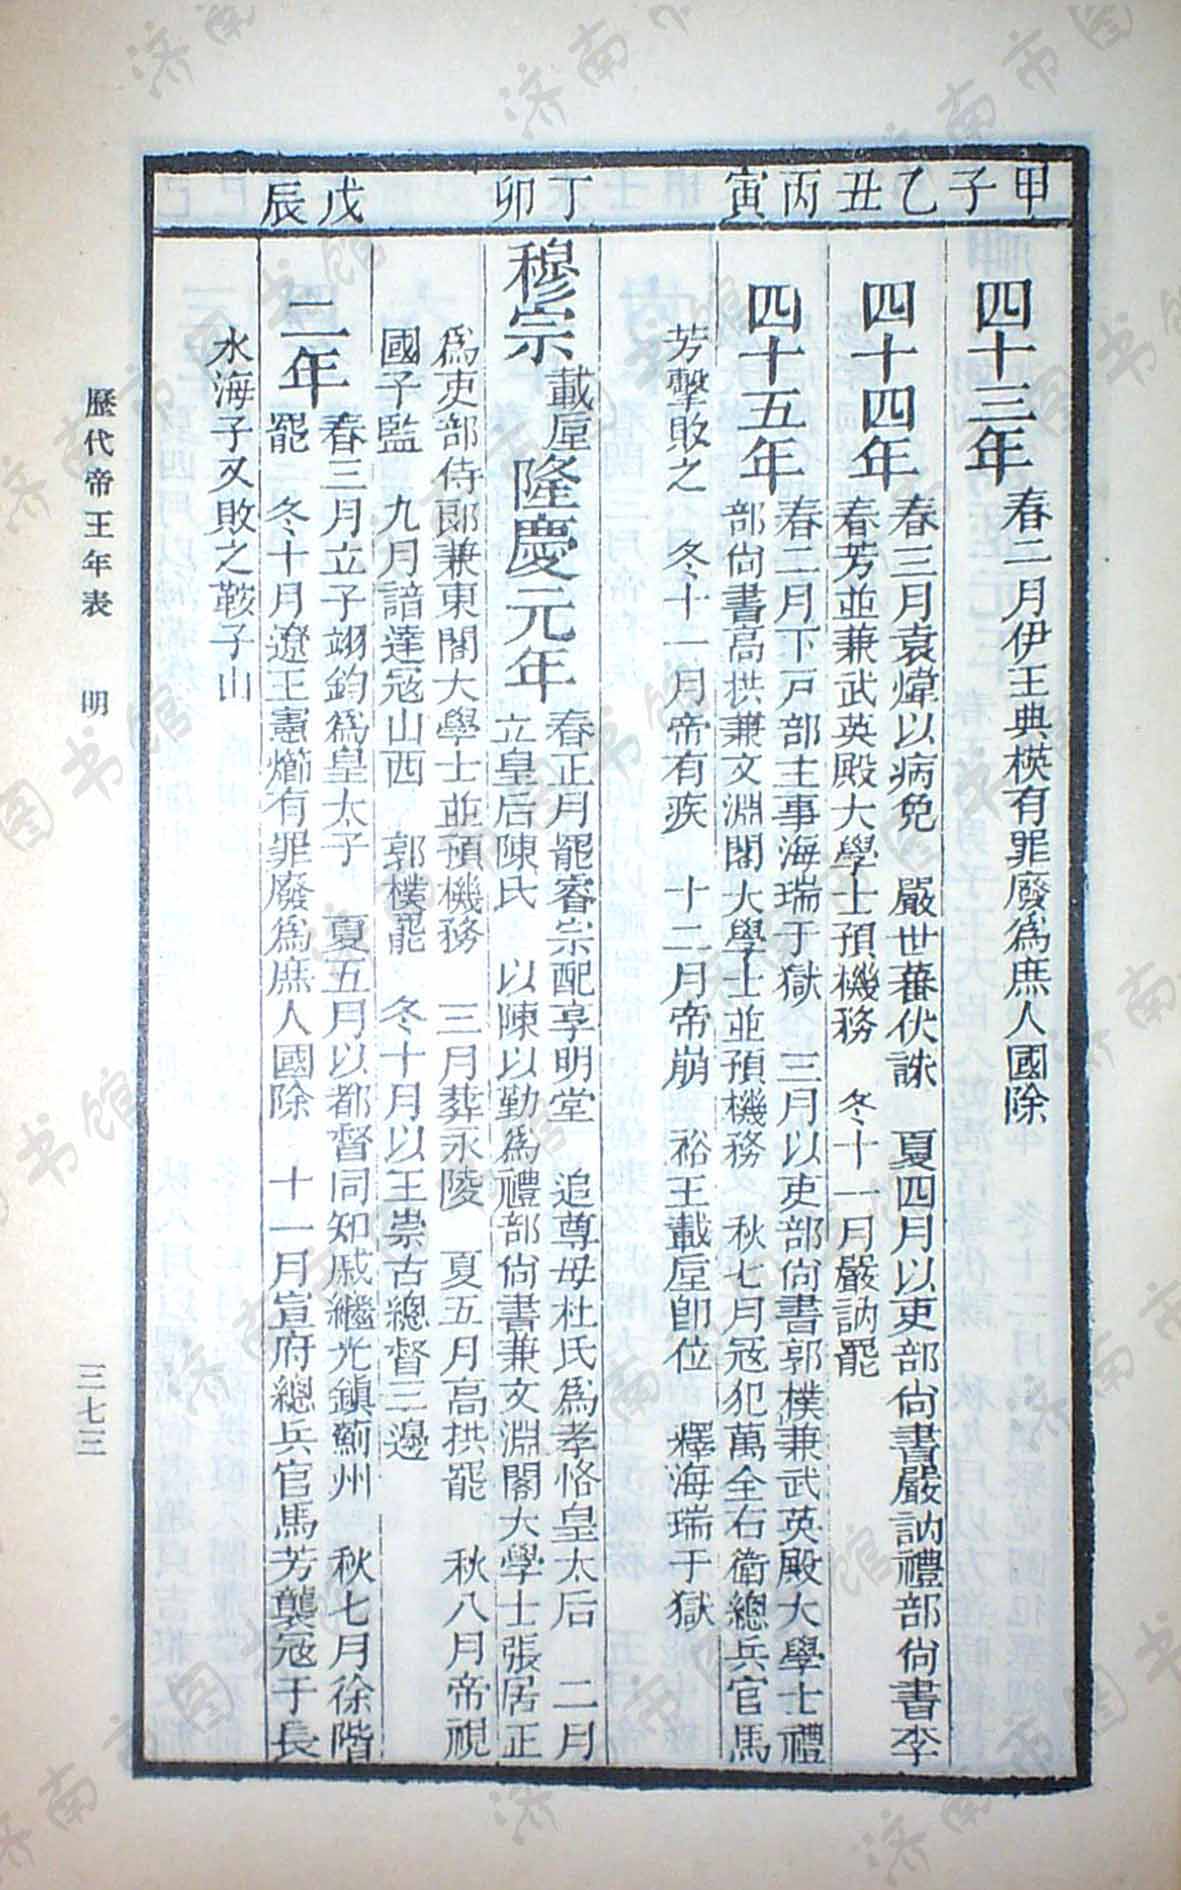 甲子
乙丑
丙寅
丁卯
戊辰
四十三年 春二月伊王典楧有罪廢爲庶人國除
四十四年 春三月袁煒以病免 嚴世蕃伏誅 夏四月以吏部尙書嚴訥禮部尙書李
春芳並兼武英殿大學士預機務 冬十一月嚴訥罷
四十五年 春二月下戸部主事海瑞于獄 三月以吏部尙書郭樸兼武英殿大學士禮
部尙書高拱兼文淵閣大學士並預機務 秋七月寇犯萬全右衛總兵官馬
芳擊敗之 冬十一月帝有疾 十二月帝崩 裕王載垕卽位 釋海瑞于獄
穆宗載垕隆慶元年 春正月罷睿宗配享明堂 追尊母杜氏爲孝恪皇太后 二月
立皇后陳氏 以陳以勤爲禮部尙書兼文淵閣大學士張居正
爲吏部侍郞兼東閣大學士並預機務 三月葬永陵 夏五月高拱罷 秋八月帝視
國子監 九月諳達寇山西 郭樸罷 冬十月以王崇古總督三邊
二年 春三月立子翊鈞爲皇太子 夏五月以都督同知戚繼光鎭薊州 秋七月徐階
罷 冬十月遼王憲㸅有罪廢爲庶人國除 十一月宣府總兵官馬芳襲寇于長
水海子又敗之鞍子山
歷代帝王年表 明
三七三
济南市图书馆